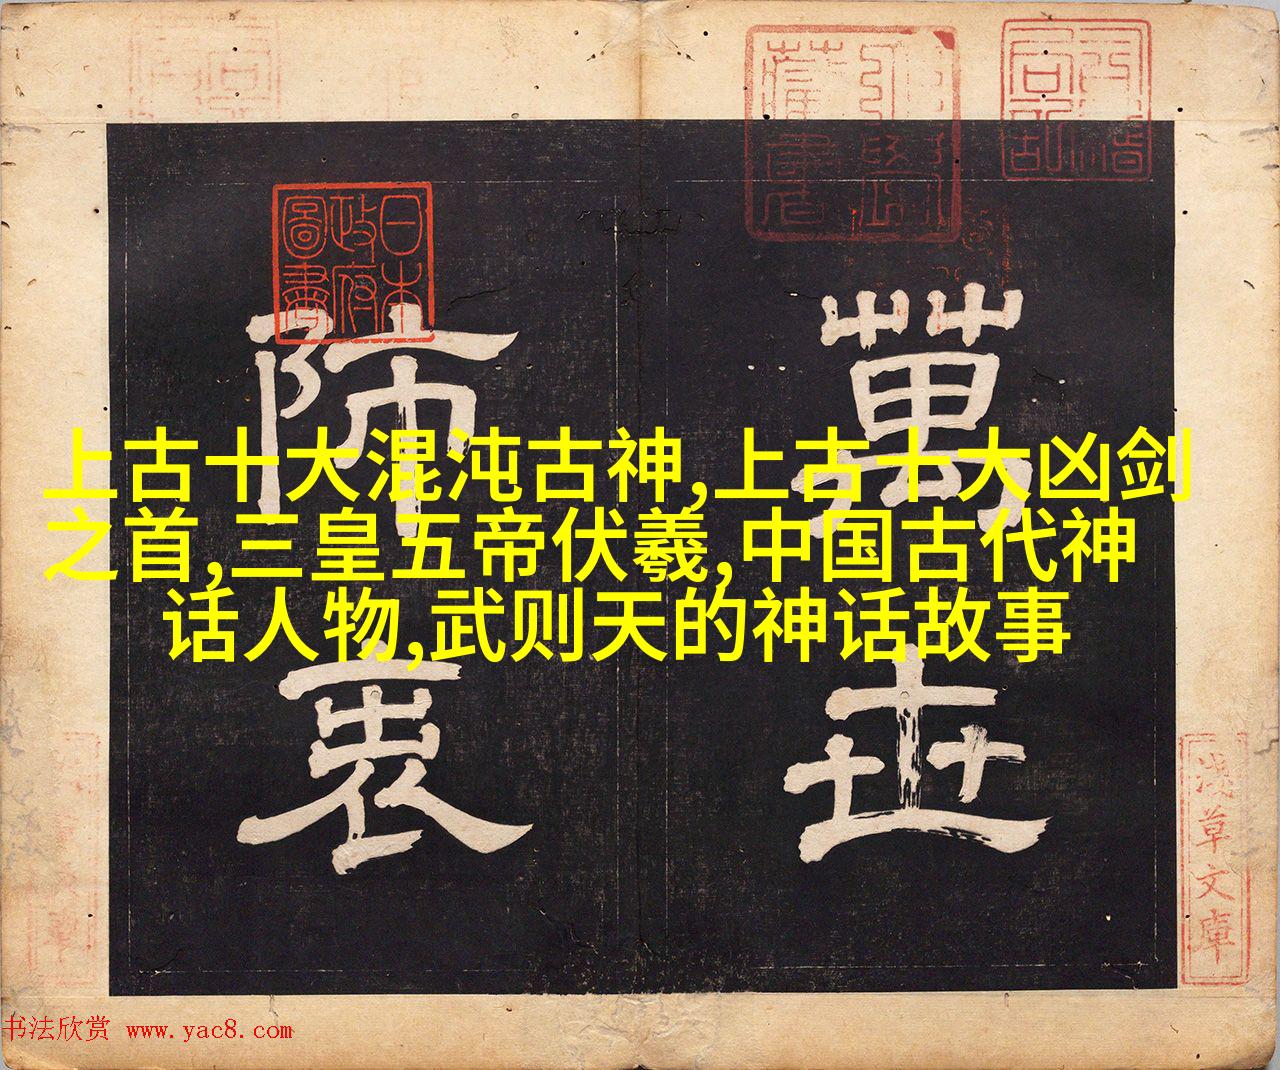 上古十大混沌古神,上古十大凶剑
之首,三皇五帝伏羲,中国古代神
话人物,武则天的神话故事
萬世
師表
日本
政府
圖書
淺草文庫
书法欣赏 www.yac8.com